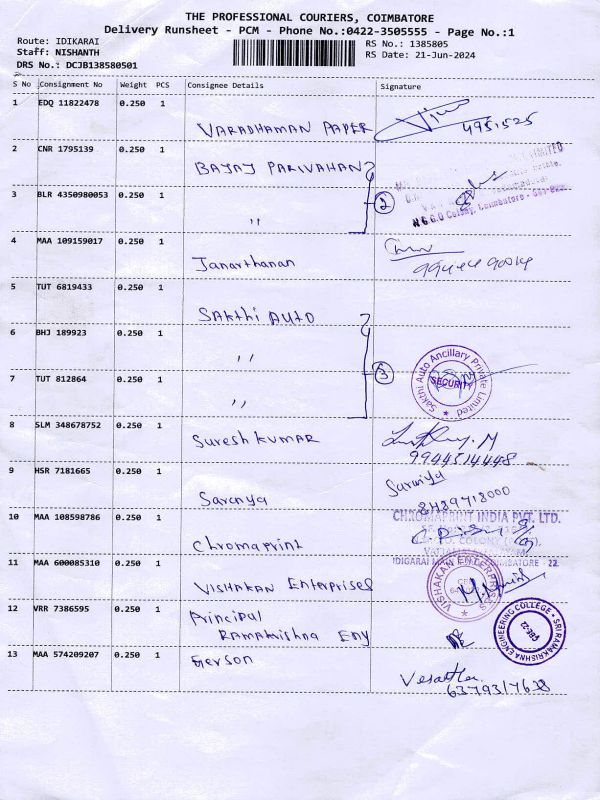 THE PROFESSIONAL COURIERS, COIMBATORE
Delivery Runsheet - PCM - Phone No.:0422-3505555 - Page No.:1
Route: IDIKARAI
RS No.: 1385805
Staff: NISHANTH
RS Date: 21-Jun-2024
DRS No.: DCJB138580501
S No Consignment No Weight PCS Consignee Details Signature
1 EDQ 11822478 0.250 1
VARADHAMAN PAPER
2 CNR 1795139 0.250 1
BAJAJ PARIVAHAN
3 BLR 4350980053 0.250 1
" 2
N G G O Colony, Coimbatore
4 MAA 109159017 0.250 1
Janarthanan
5 TUT 6819433 0.250 1
SAKthi AUTO
6 BHJ 189923 0.250 1
" 3
Sakthi Auto Ancillary Private Limited
SECURITY
7 TUT 812864 0.250 1
"
8 SLM 348678752 0.250 1
Suresh KUMAR
9944514448
9 HSR 7181665 0.250 1
Saranya
8489718000
10 MAA 108598786 0.250 1
CHROMAPRINT INDIA PVT. LTD.
Chromaprint
COIMBATORE - 22
11 MAA 600085310 0.250 1
VISHAKAN Enterprises
VISHAKAN ENTERPRISES
12 VRR 7386595 0.250 1
Principal
RAMAKrishna Eng
SRI RAMAKRISHNA ENGINEERING COLLEGE
CBE-22
13 MAA 574209207 0.250 1
Gerson